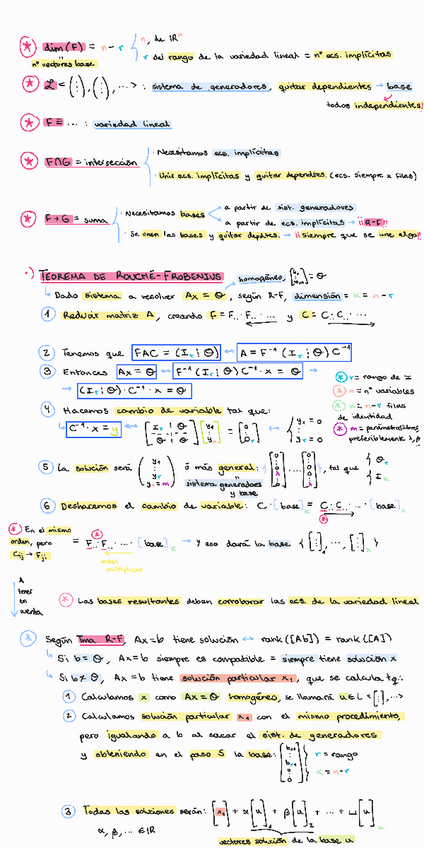 * dim(F) = n - r { n, de IR^n
nº vectores base { r del rango de la variedad lineal = nº ecs. implícitas
* L < (:), (:), ...> : sistema de generadores, quitar dependientes → base
todos independientes!
* F ≡ ... : variedad lineal
* F∩G = intersección { · Necesitamos ecs. implícitas
· Unir ecs. implícitas y quitar dependtes. (ecs. siempre x filas)
* F+G = suma { · Necesitamos bases < a partir de sist. generadores
a partir de ecs. implícitas → ¡¡R-F!!
· Se unen las bases y quitar depdtes. → ¡¡Siempre que se une algo!!
·) TEOREMA DE ROUCHÉ-FROBENIUS
↳ Dado sistema a resolver Ax = θ, según R-F, dimensión = k = n - r
homogéneo,
1 Reducir matriz A, creando F = F.. F.. ... y C = C.. C.. ...
2 Tenemos que FAC = (Ir | θ) ↔ A = F^-1 (Ir | θ) C^-1
3 Entonces Ax = θ ↔ F^-1 (Ir | θ) C^-1 · x = θ →
→ (Ir | θ) · C^-1 · x = θ
* r = rango de
* n = nº variables
* k = n - r filas
de identidad
* m = parámetros libres
preferiblemente λ, β
4 Hacemos cambio de variable tal que:
↳ C^-1 · x = y ↔
5 La solución será ó más general: , tal que
sistema generadores
y base
6 Deshacemos el cambio de variable: C · [base] = C.. C.. ... [base]
* En el mismo
orden, pero
Cij → Fji
= F.. F.. ... [base] → y eso dará la base { [:], ..., [:] }
orden
multiplicar
A
tener
en
cuenta
* Las bases resultantes deben corroborar las ecs. de la variedad lineal
* Según Tma R-F, Ax=b tiene solución ↔ rank([Ab]) = rank([A])
↳ Si b = θ, Ax=b siempre es compatible = siempre tiene solución x
↳ Si b ≠ θ, Ax=b tiene solución particular x1, que se calcula tq:
1 Calculamos x como Ax = θ homogéneo, se llamará u ∈ L < [:], ...>
2 Calculamos solución particular x1 con el mismo procedimiento,
pero igualando a b al sacar el sist. de generadores
y obteniendo en el paso 5 la base: r = rango
k = n - r
3 Todas las soluciones serán: [x1] + α [u] + β [u] + ... + [u]
α, β, ... ∈ IR
vectores solución de la base u